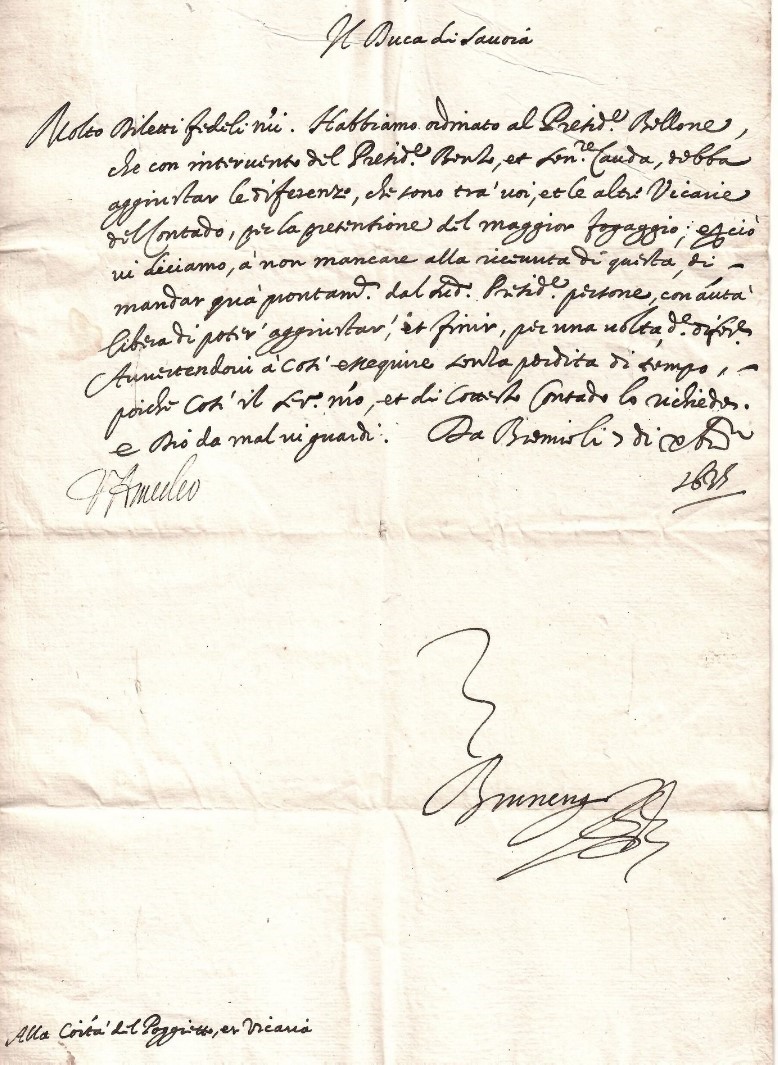 Il Duca di Savoia
Molto Diletti fedeli n'ri. Habbiamo ordinato al Presid.e Bellone,
che con intervento del Presid.e Benso, et Sen.re Cauda, debba
aggiustar le diferenze, che sono tra' voi, et le altre Vicarie
del Contado, per la pretentione del maggior fogaggio; et però
vi diciamo, à non mancare alla ricevuta di questa, di
mandar quà prontam.e dal sud.o Presid.e persone, con autà
libera di poter' aggiustar', et finir, per una volta d.e difer.e
Avvertendovi à così esseguire senza perdita di tempo,
poiche così il Ser.o n'ro, et di Cotesto Contado lo richiede.
e Dio da mal vi guardi. Da 7 di xbre
V Amedeo
Alla Co'ità del Poggietto, et Vicaria